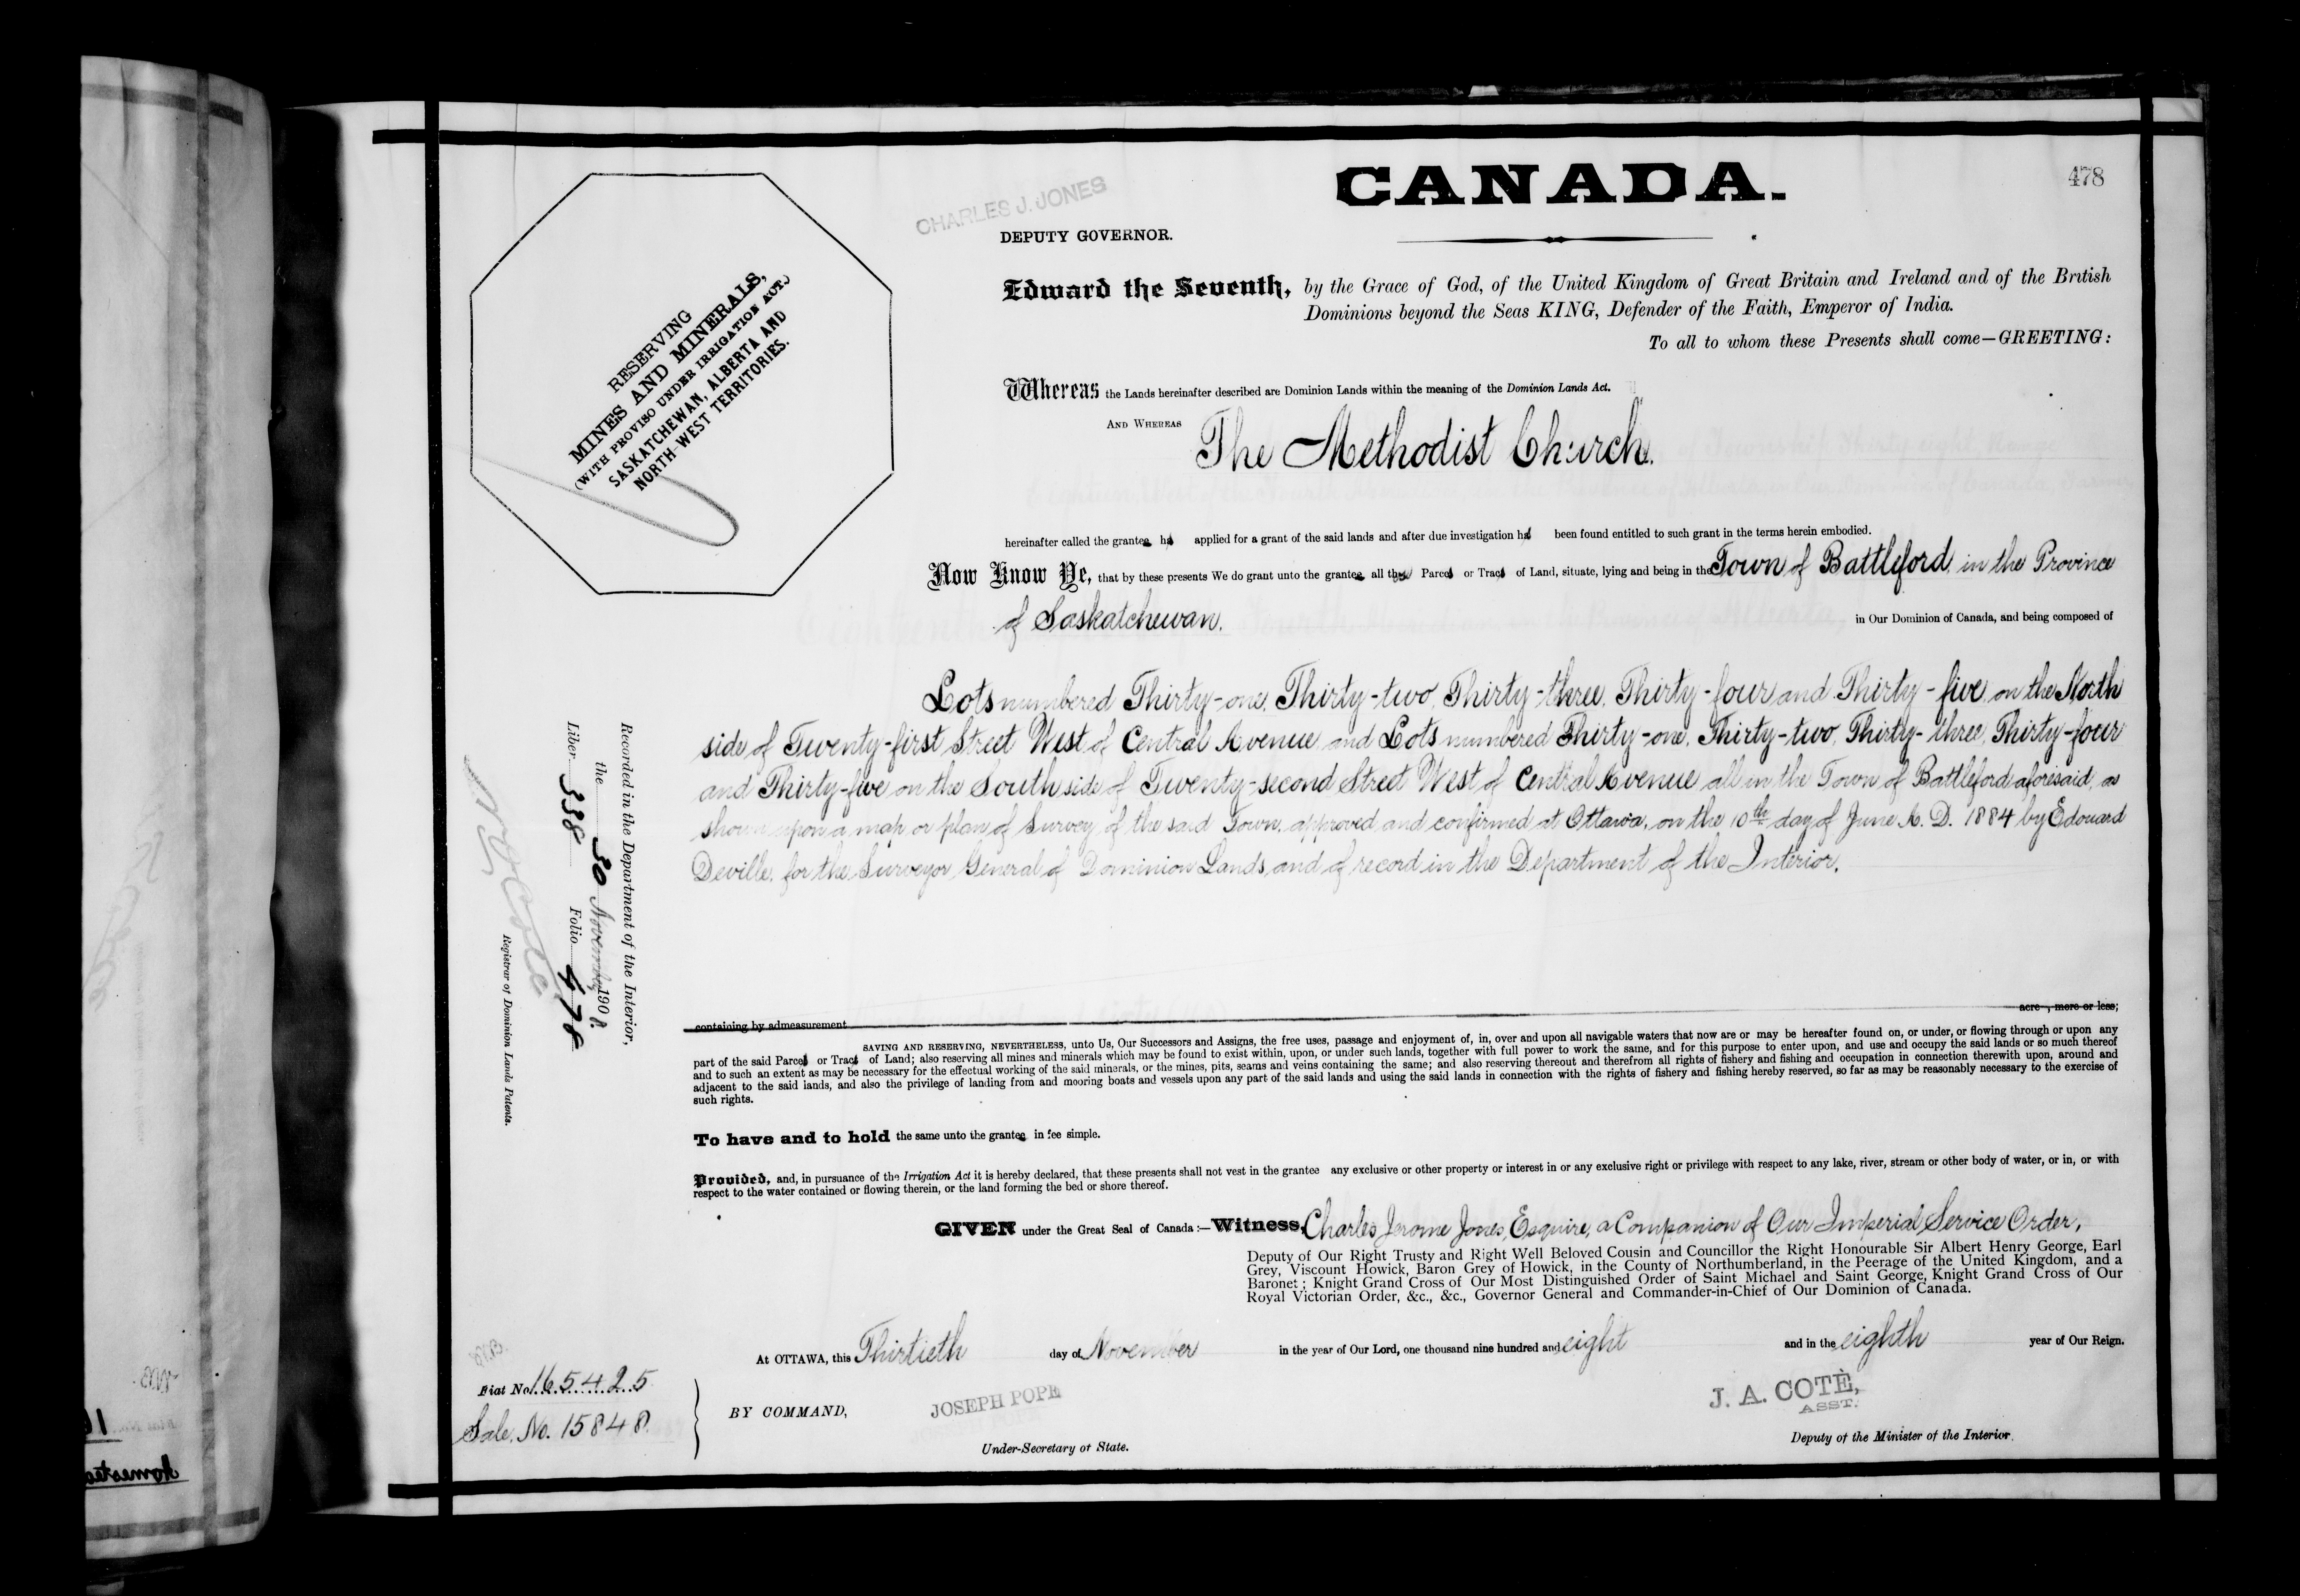 478
CANADA.
CHARLES J. JONES
DEPUTY GOVERNOR.
RESERVING
MINES AND MINERALS,
(WITH PROVISO UNDER IRRIGATION ACT.)
SASKATCHEWAN, ALBERTA AND
NORTH-WEST TERRITORIES.
Edward the Seventh, by the Grace of God, of the United Kingdom of Great Britain and Ireland and of the British
Dominions beyond the Seas KING, Defender of the Faith, Emperor of India.
To all to whom these Presents shall come—GREETING:
Whereas the Lands hereinafter described are Dominion Lands within the meaning of the Dominion Lands Act.
AND WHEREAS The Methodist Church.
hereinafter called the grantee has applied for a grant of the said lands and after due investigation has been found entitled to such grant in the terms herein embodied.
Now Know Ye, that by these presents We do grant unto the grantee all those Parcels or Tracts of Land, situate, lying and being in the Town of Battleford, in the Province
of Saskatchewan. in Our Dominion of Canada, and being composed of
Lots numbered Thirty-one, Thirty-two, Thirty-three, Thirty-four and Thirty-five, on the North
side of Twenty-first Street West of Central Avenue and Lots numbered Thirty-one, Thirty-two, Thirty-three, Thirty-four
and Thirty-five on the South side of Twenty-second Street West of Central Avenue all in the Town of Battleford aforesaid, as
shown upon a map or plan of Survey of the said Town, approved and confirmed at Ottawa, on the 10th day of June A. D. 1884 by Edouard
Deville, for the Surveyor General of Dominion Lands, and of record in the Department of the Interior.
containing by admeasurement acre , more or less;
SAVING AND RESERVING, NEVERTHELESS, unto Us, Our Successors and Assigns, the free uses, passage and enjoyment of, in, over and upon all navigable waters that now are or may be hereafter found on, or under, or flowing through or upon any
part of the said Parcels or Tracts of Land; also reserving all mines and minerals which may be found to exist within, upon, or under such lands, together with full power to work the same, and for this purpose to enter upon, and use and occupy the said lands or so much thereof
and to such an extent as may be necessary for the effectual working of the said minerals, or the mines, pits, seams and veins containing the same; and also reserving thereout and therefrom all rights of fishery and fishing and occupation in connection therewith upon, around and
adjacent to the said lands, and also the privilege of landing from and mooring boats and vessels upon any part of the said lands and using the said lands in connection with the rights of fishery and fishing hereby reserved, so far as may be reasonably necessary to the exercise of
such rights.
To have and to hold the same unto the grantee in fee simple.
Provided, and, in pursuance of the Irrigation Act it is hereby declared, that these presents shall not vest in the grantee any exclusive or other property or interest in or any exclusive right or privilege with respect to any lake, river, stream or other body of water, or in, or with
respect to the water contained or flowing therein, or the land forming the bed or shore thereof.
GIVEN under the Great Seal of Canada:—Witness, Charles Jerome Jones, Esquire, a Companion of Our Imperial Service Order,
Deputy of Our Right Trusty and Right Well Beloved Cousin and Councillor the Right Honourable Sir Albert Henry George, Earl
Grey, Viscount Howick, Baron Grey of Howick, in the County of Northumberland, in the Peerage of the United Kingdom, and a
Baronet; Knight Grand Cross of Our Most Distinguished Order of Saint Michael and Saint George, Knight Grand Cross of Our
Royal Victorian Order, &c., &c., Governor General and Commander-in-Chief of Our Dominion of Canada.
At OTTAWA, this Thirtieth day of November in the year of Our Lord, one thousand nine hundred and eight and in the eighth year of Our Reign.
BY COMMAND,
JOSEPH POPE
Under-Secretary of State.
J. A. COTÈ,
ASST.
Deputy of the Minister of the Interior.
Fiat No. 165425
Sale. No. 15848.
Recorded in the Department of the Interior,
the 30 November 1908.
Liber 338 Folio 478
N O Coté
Registrar of Dominion Lands Patents.